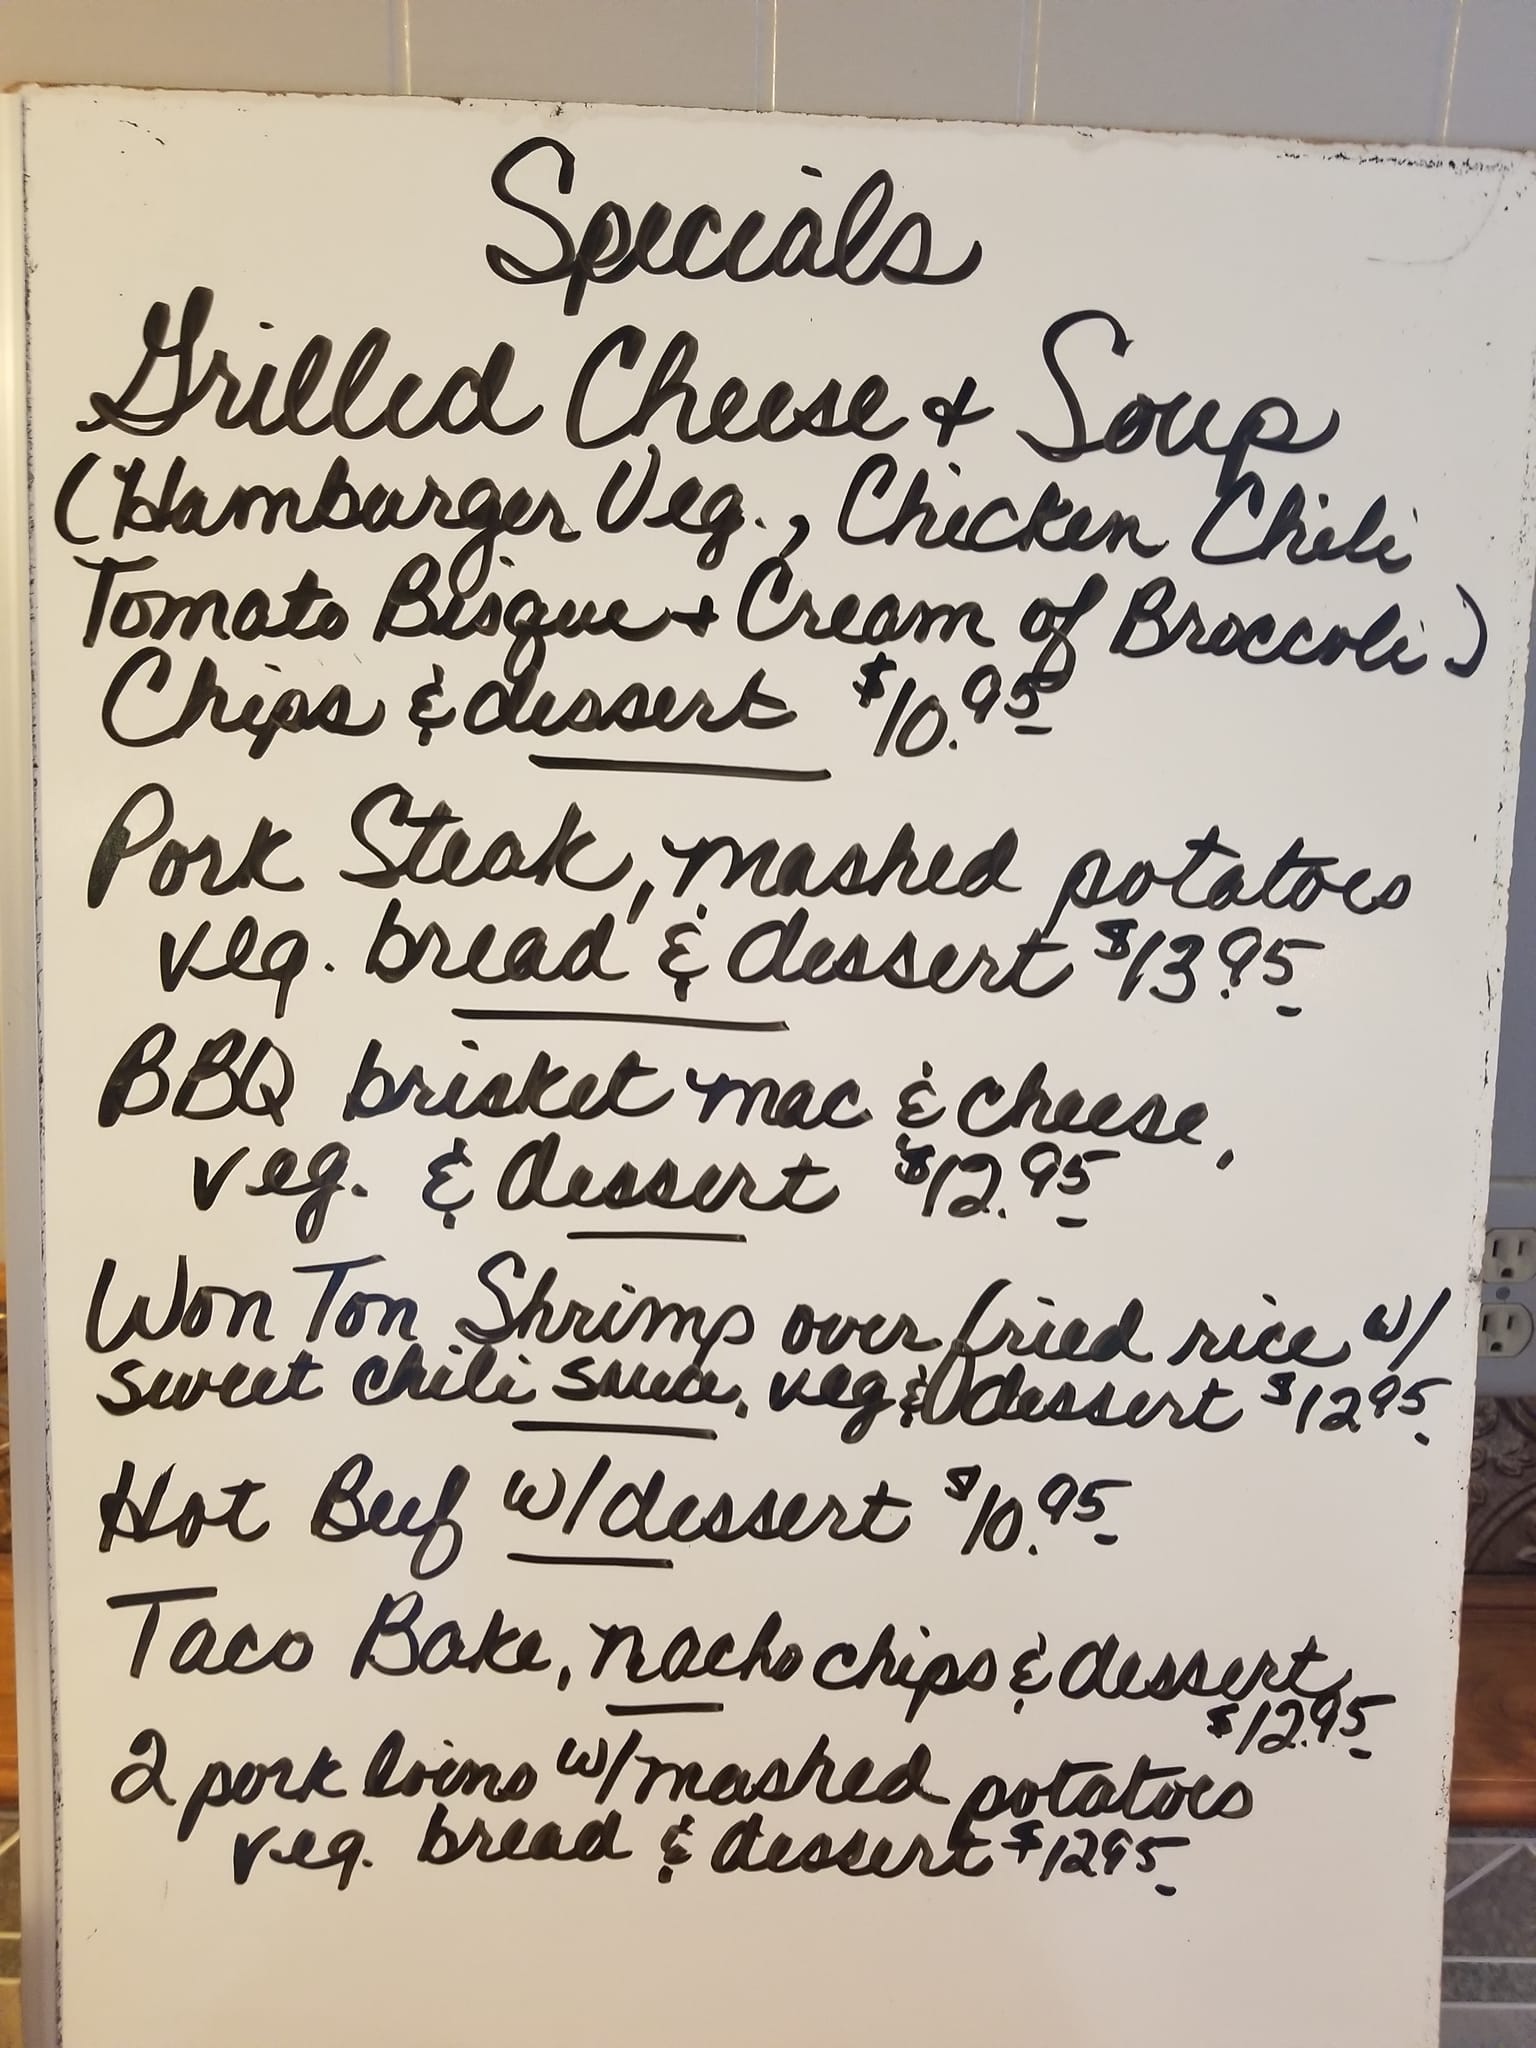 Specials
Grilled Cheese & Soup
(Hamburger Veg., Chicken Chili
Tomato Bisque & Cream of Broccoli)
Chips & dessert $10.95
Pork Steak, mashed potatoes
veg. bread & dessert $13.95
BBQ brisket mac & cheese,
veg. & dessert $12.95
Won Ton Shrimp over fried rice w/
sweet chili sauce, veg & dessert $12.95
Hot Beef w/dessert $10.95
Taco Bake, nacho chips & dessert
$12.95
2 pork loins w/mashed potatoes
veg. bread & dessert $12.95